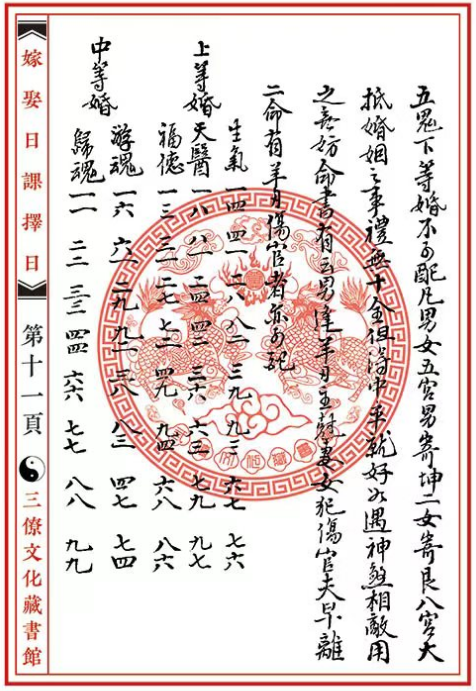 五鬼下等婚不可配凡男女五宮男寄坤二女寄艮八宮大
抵婚姻之事禮無十全但得中平就好如遇神煞相敵用
之無妨命書有云男逢羊刃主尅妻女犯傷官夫早離
二命有羊刃傷官者亦可配
生氣 一四 四一 二八 八二 三九 九三 六七 七六
上等婚 天醫 一八 八一 二四 四二 三六 六三 七九 九七
福德 一三 三一 二七 七二 四九 九四 六八 八六
中等婚 游魂 一六 六一 二九 九二 三八 八三 四七 七四
歸魂 一一 二二 三三 四四 六六 七七 八八 九九
嫁娶日課擇日 第十一頁 三僚文化藏書館